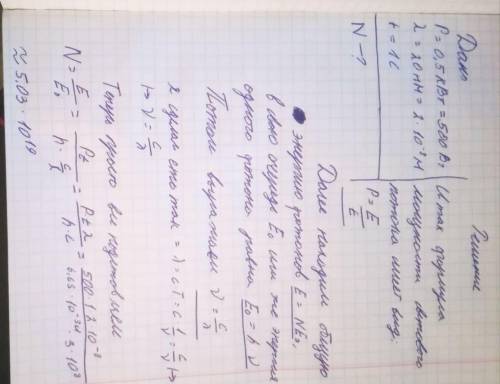 Дано
P = 0,5 кВт = 500 Вт
λ = 20 нм = 2·10⁻⁸ м
t = 1 с
N - ?
Решение
Итак формула
мощности светового
потока имеет вид:
P = E/t
Далее находим общую
энергию фотонов E = NE₀,
в свою очередь E₀ или же энергия
одного фотона равна E₀ = h ν
Потом выражаем ν = c/λ
я сделал это так = λ = cT = c 1/ν = c/ν =>
=> ν = c/λ
Теперь просто все подставляем
N = E/E₀ = Pt/(h · c/λ) = Ptλ/(hc) = 500·1·2·10⁻⁸/(6,63·10⁻³⁴·3·10⁸)
≈ 5.03·10¹⁹